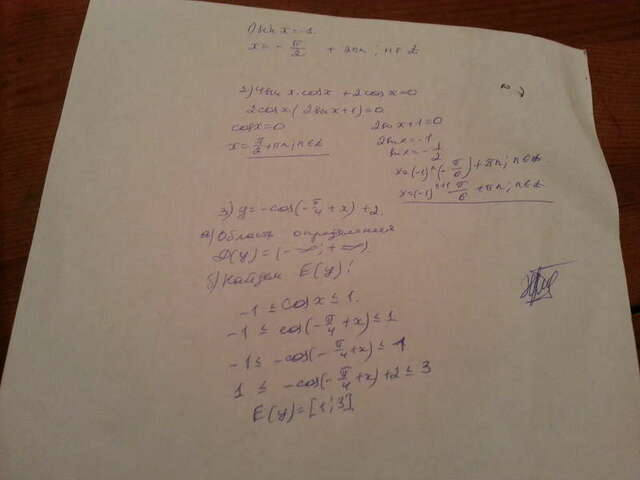 1) sin x = -1.
x = -π/2 + 2πn; n∈Z
2) 4sin x·cosx + 2cosx = 0
2cosx·(2sinx+1)=0
cosx=0
x = π/2 + πn; n∈Z
2sinx+1=0
2sinx=-1
sinx = -1/2
x=(-1)ⁿ(-π/6)+πn; n∈Z
x=(-1)ⁿ⁺¹ π/6 +πn; n∈Z
3) y=-cos(-π/4+x)+2.
а) Область определения
D(y)=(-∞;+∞)
б) Найдем E(y):
-1 ≤ cos x ≤ 1.
-1 ≤ cos(-π/4+x) ≤ 1
-1 ≤ -cos(-π/4+x) ≤ 1
1 ≤ -cos(-π/4+x)+2 ≤ 3
E(y)=[1;3]